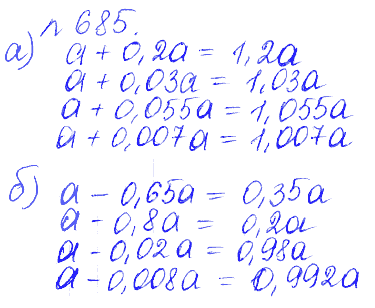 n 685.
а) a + 0,2a = 1,2a
a + 0,03a = 1,03a
a + 0,055a = 1,055a
a + 0,007a = 1,007a
б) a - 0,65a = 0,35a
a - 0,8a = 0,2a
a - 0,02a = 0,98a
a - 0,008a = 0,992a